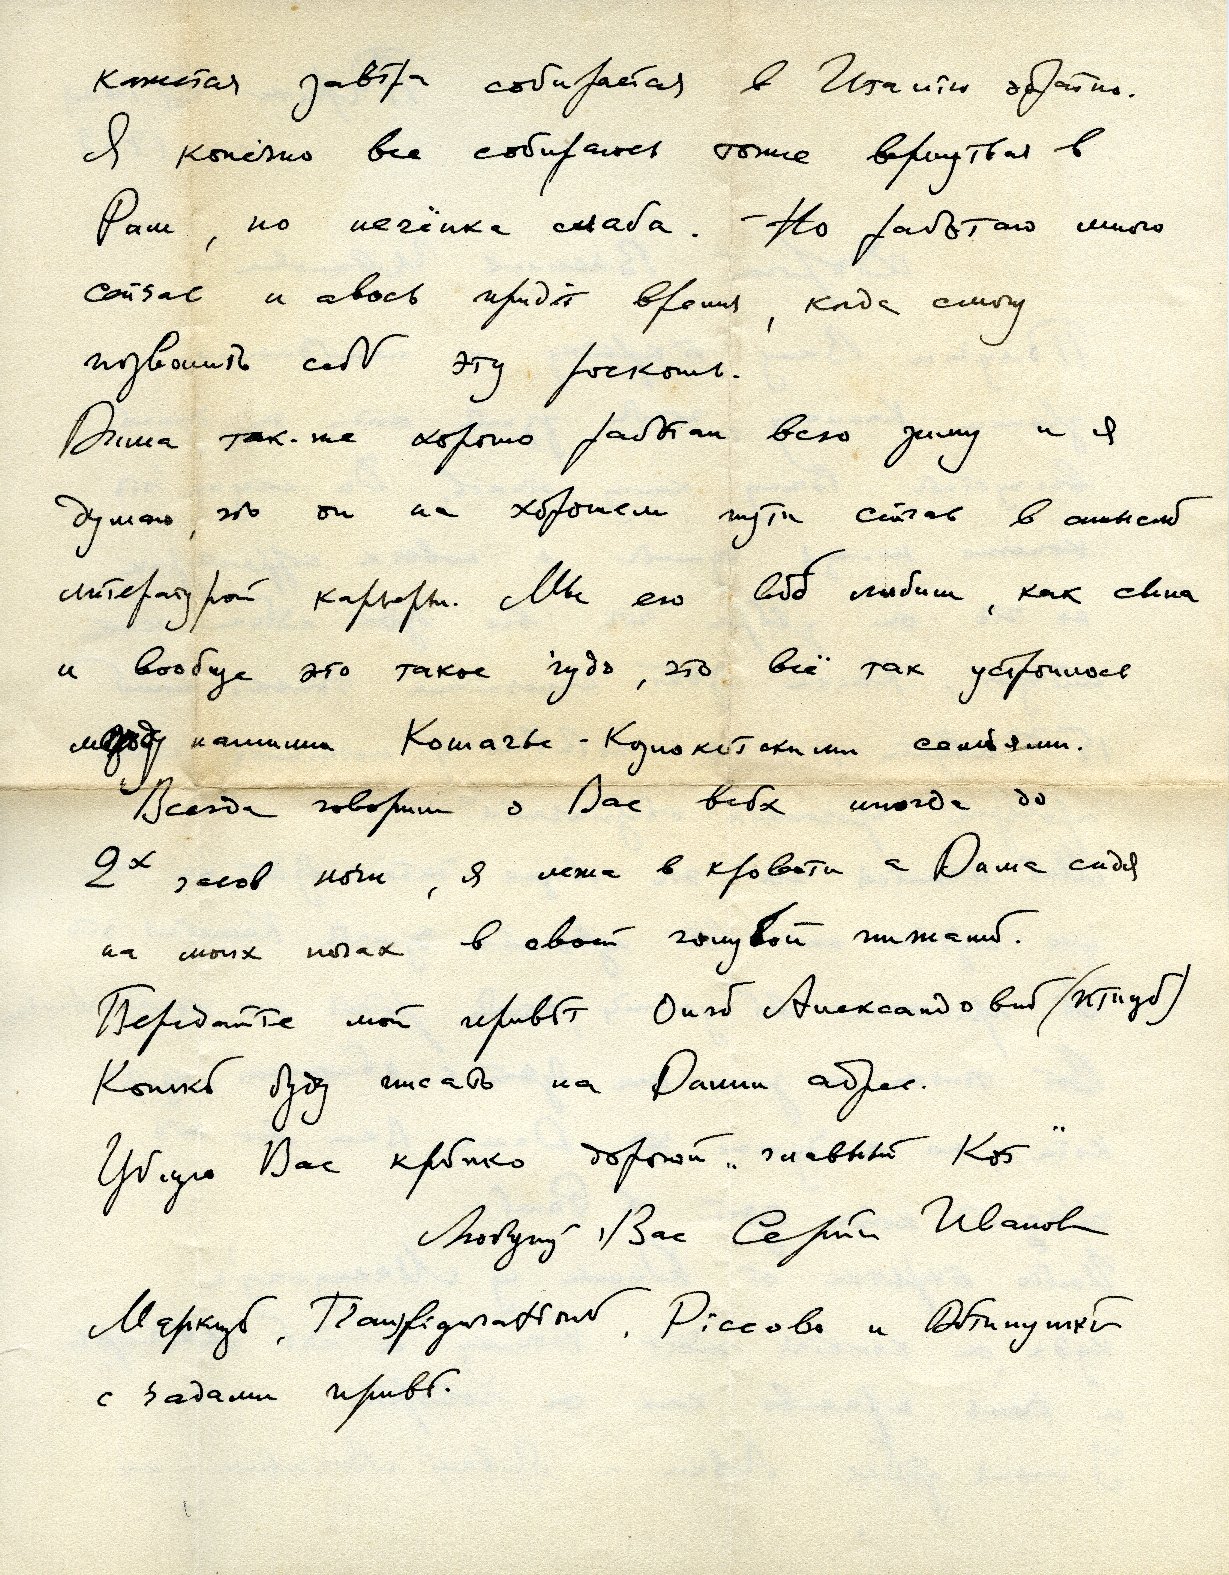 кажется завтра собирается в Италию обратно.
Я конечно все собираюсь тоже вернуться в
Рим, но печёнка слаба. – Но работаю много
сейчас и авось придёт время, когда смогу
позволить себѣ эту роскошь.
Дима так-же хорошо работал всю зиму и я
думаю, что он на хорошем пути сейчас в смыслѣ
литературной карьеры. Мы его всѣ любим, как сына
и вообще это такое чудо, что всё так устроилось
между нашими Кошачье - Козлокотскими семьями.
Всегда говорим о Вас всѣх иногда до
2х часов ночи, я лежа в кровати а Дима сидя
на моих ногах в своей голубой пижамѣ.
Передайте мой привѣт Ольгѣ Александровнѣ (птицѣ)
Кошкѣ буду писать на Димин адрес.
Цѣлую Вас крѣпко дорогой „главный Кот"
Любящий Вас Сергѣй Иванов
, Transfigurationѣ, Piccolo и
с чадами привѣт.